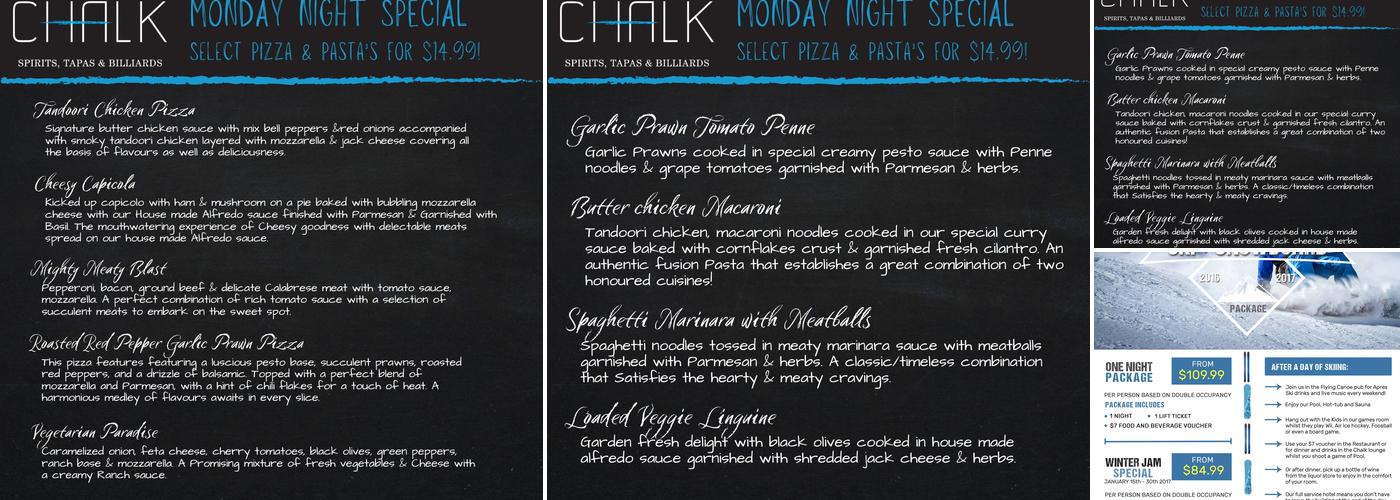 CHALK
SPIRITS, TAPAS & BILLIARDS
MONDAY NIGHT SPECIAL
SELECT PIZZA & PASTA'S FOR $14.99!
Tandoori Chicken Pizza
Signature butter chicken sauce with mix bell peppers &red onions accompanied
with smoky tandoori chicken layered with mozzarella & jack cheese covering all
the basis of flavours as well as deliciousness.
Cheesy Capicola
Kicked up capicolo with ham & mushroom on a pie baked with bubbling mozzarella
cheese with our House made Alfredo sauce finished with Parmesan & Garnished with
Basil. The mouthwatering experience of Cheesy goodness with delectable meats
spread on our house made Alfredo sauce.
Mighty Meaty Blast
Pepperoni, bacon, ground beef & delicate Calabrese meat with tomato sauce,
mozzarella. A perfect combination of rich tomato sauce with a selection of
succulent meats to embark on the sweet spot.
Roasted Red Pepper Garlic Prawn Pizza
This pizza features featuring a luscious pesto base, succulent prawns, roasted
red peppers, and a drizzle of balsamic. Topped with a perfect blend of
mozzarella and Parmesan, with a hint of chili flakes for a touch of heat. A
harmonious medley of flavours awaits in every slice.
Vegetarian Paradise
Caramelized onion, feta cheese, cherry tomatoes, black olives, green peppers,
ranch base & mozzarella. A Promising mixture of fresh vegetables & Cheese with
a creamy Ranch sauce.
CHALK
SPIRITS, TAPAS & BILLIARDS
MONDAY NIGHT SPECIAL
SELECT PIZZA & PASTA'S FOR $14.99!
Garlic Prawn Tomato Penne
Garlic Prawns cooked in special creamy pesto sauce with Penne
noodles & grape tomatoes garnished with Parmesan & herbs.
Butter chicken Macaroni
Tandoori chicken, macaroni noodles cooked in our special curry
sauce baked with cornflakes crust & garnished fresh cilantro. An
authentic fusion Pasta that establishes a great combination of two
honoured cuisines!
Spaghetti Marinara with Meatballs
Spaghetti noodles tossed in meaty marinara sauce with meatballs
garnished with Parmesan & herbs. A classic/timeless combination
that Satisfies the hearty & meaty cravings.
Loaded Veggie Linguine
Garden fresh delight with black olives cooked in house made
alfredo sauce garnished with shredded jack cheese & herbs.
SPIRITS, TAPAS & BILLIARDS
SELECT PIZZA & PASTA'S FOR $14.99!
Garlic Prawn Tomato Penne
Garlic Prawns cooked in special creamy pesto sauce with Penne
noodles & grape tomatoes garnished with Parmesan & herbs.
Butter chicken Macaroni
Tandoori chicken, macaroni noodles cooked in our special curry
sauce baked with cornflakes crust & garnished fresh cilantro. An
authentic fusion Pasta that establishes a great combination of two
honoured cuisines!
Spaghetti Marinara with Meatballs
Spaghetti noodles tossed in meaty marinara sauce with meatballs
garnished with Parmesan & herbs. A classic/timeless combination
that Satisfies the hearty & meaty cravings.
Loaded Veggie Linguine
Garden fresh delight with black olives cooked in house made
alfredo sauce garnished with shredded jack cheese & herbs.
2016 2017
PACKAGE
ONE NIGHT
PACKAGE
FROM
$109.99
PER PERSON BASED ON DOUBLE OCCUPANCY
PACKAGE INCLUDES
1 NIGHT 1 LIFT TICKET
$7 FOOD AND BEVERAGE VOUCHER
WINTER JAM
SPECIAL
JANUARY 15th - 30th 2017
FROM
$84.99
PER PERSON BASED ON DOUBLE OCCUPANCY
AFTER A DAY OF SKIING:
Join us in the Flying Canoe pub for Apres
Ski drinks and live music every weekend!
Enjoy our Pool, Hot-tub and Sauna
Hang out with the Kids in our games room
whilst they play Wii, Air Ice hockey, Foosball
or even a board game.
Use your $7 voucher in the Restaurant or
for dinner and drinks in the Chalk lounge
whilst you shoot a game of Pool.
Or after dinner, pick up a bottle of wine
from the liquor store to enjoy in the comfort
of your room.
Our full service hotel means you don't have